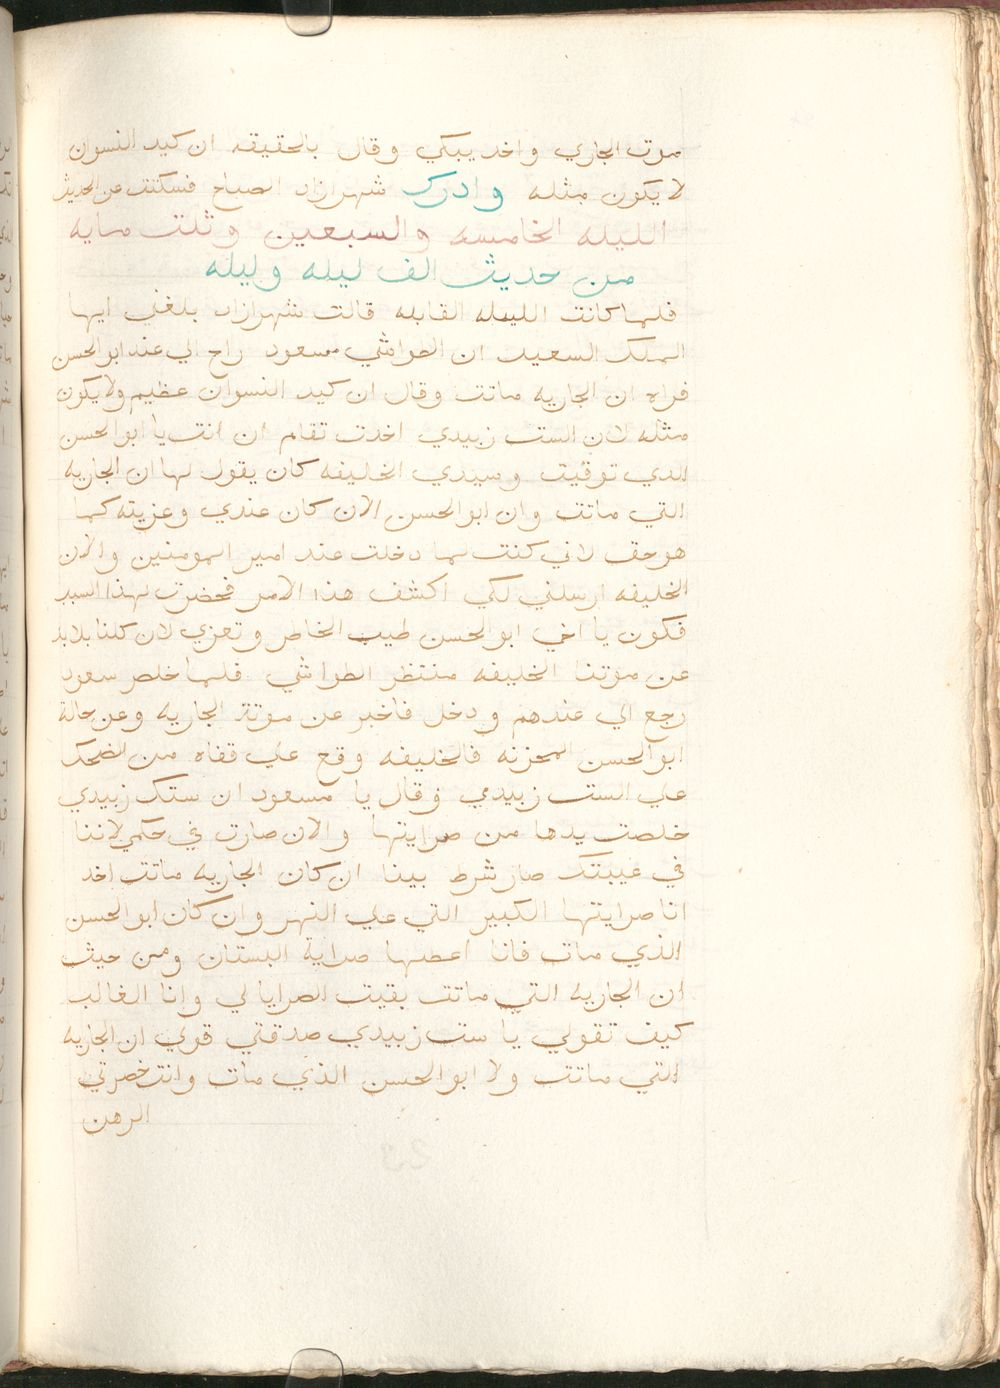 موت الجاري واخد يبكي وقال بالحقيقه ان كيد النسوان
لا يكون مثله وادرك شهرازاد الصباح فسكتت عن الحديث
الليله الخامسه والسبعين وثلت مايه
من حديث الف ليله وليله
فلما كانت الليله القابله قالت شهرازاد بلغني ايها
الملك السعيد ان الطواشي مسعود راح الي عند ابو الحسن
فراه ان الجاريه ماتت وقال ان كيد النسوان عظيم ولا يكون
مثله لان الست زبيدي اخدت تقام ان انت يا ابو الحسن
الدي توفيت وسيدي الخليفه كان يقول لها ان الجاريه
التي ماتت وان ابو الحسن الان كان عندي وعزيته كما
هو حق لاني كنت لما دخلت عند امير المومنين والان
الخليفه ارسلني لكي اكشف هذا الامر فحضرت لهذا السبب
فكون يا اخي ابو الحسن طيب الخاطر وتعزي لان كلنا بلا بد
عن موتنا الخليفه منتظر الطواشي فلما خلص سعود
رجع الي عندهم ودخل فاخبر عن موتة الجاريه وعن حالة
ابو الحسن المحزنه فالخليفه وقع علي قفاه من الضحك
علي الست زبيدي وقال يا مسعود ان ستك زبيدي
خلصت يدها من صرايتها والان صارت في حكمي لاننا
في غيبتك صار شرط بيننا ان كان الجاريه ماتت اخد
انا صرايتها الكبير التي علي النهر وان كان ابو الحسن
الذي مات فانا اعطيها صراية البستان ومن حيث
ان الجاريه التي ماتت بقيت الصرايا لي وانا الغالب
كيف تقولي يا ست زبيدي صدقتي قولي ان الجاريه
التي ماتت ولا ابو الحسن الذي مات وانت خصرتي
الرهن